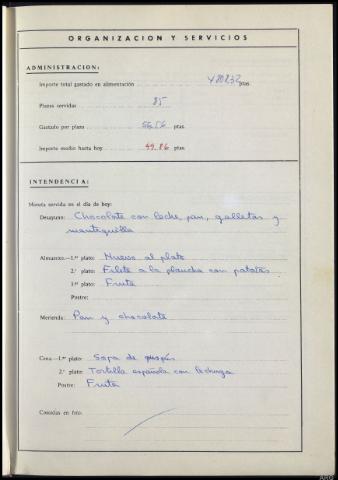 ORGANIZACION Y SERVICIOS
ADMINISTRACION:
Importe total gastado en alimentación ptas.
Plazas servidas 85
Gastado por plaza 56,56 ptas.
Importe medio hasta hoy 49,86 ptas.
INTENDENCIA:
Minuta servida en el día de hoy:
Desayuno: Chocolate con leche, pan, galletas y
mantequilla
Almuerzo.—1.er plato: Huevo al plato
2.º plato: Filete a la plancha con patatas
3.er plato: Fruta
Postre:
Merienda: Pan y chocolate
Cena.—1.er plato: Sopa de
2.º plato: Tortilla española con lechuga
Postre: Fruta
Comidas en frío: